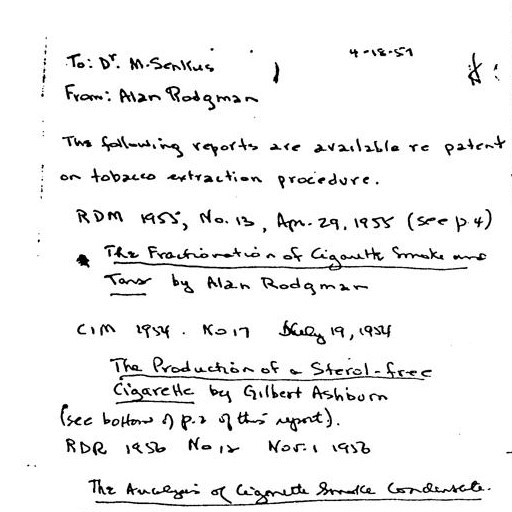 4-18-57
To: Dr. M. Senkus
From: Alan Rodgman
The following reports are available re patent
on tobacco extraction procedure.
RDM 1955, No. 13, Apr. 29, 1955 (see p.4)
The Fractionation of Cigarette Smoke and
Tars by Alan Rodgman
CIM 1954. No 17 July 19, 1954
The Production of a Sterol-free
Cigarette by Gilbert Ashburn
(see bottom of p.2 of this report).
RDR 1956 No 12 Nov. 1 1956
The Analysis of Cigarette Smoke Condensate.